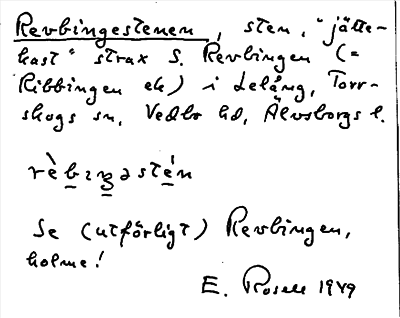 Revbingestenen, sten, "jätte-
kast" strax S. Revbingen (=
Ribbingen ek) i Lelång, Torr-
skogs sn, Vedbo hd, Älvsborgs l.
Se (utförligt) Revbingen,
holme!
E. Rosell 1949